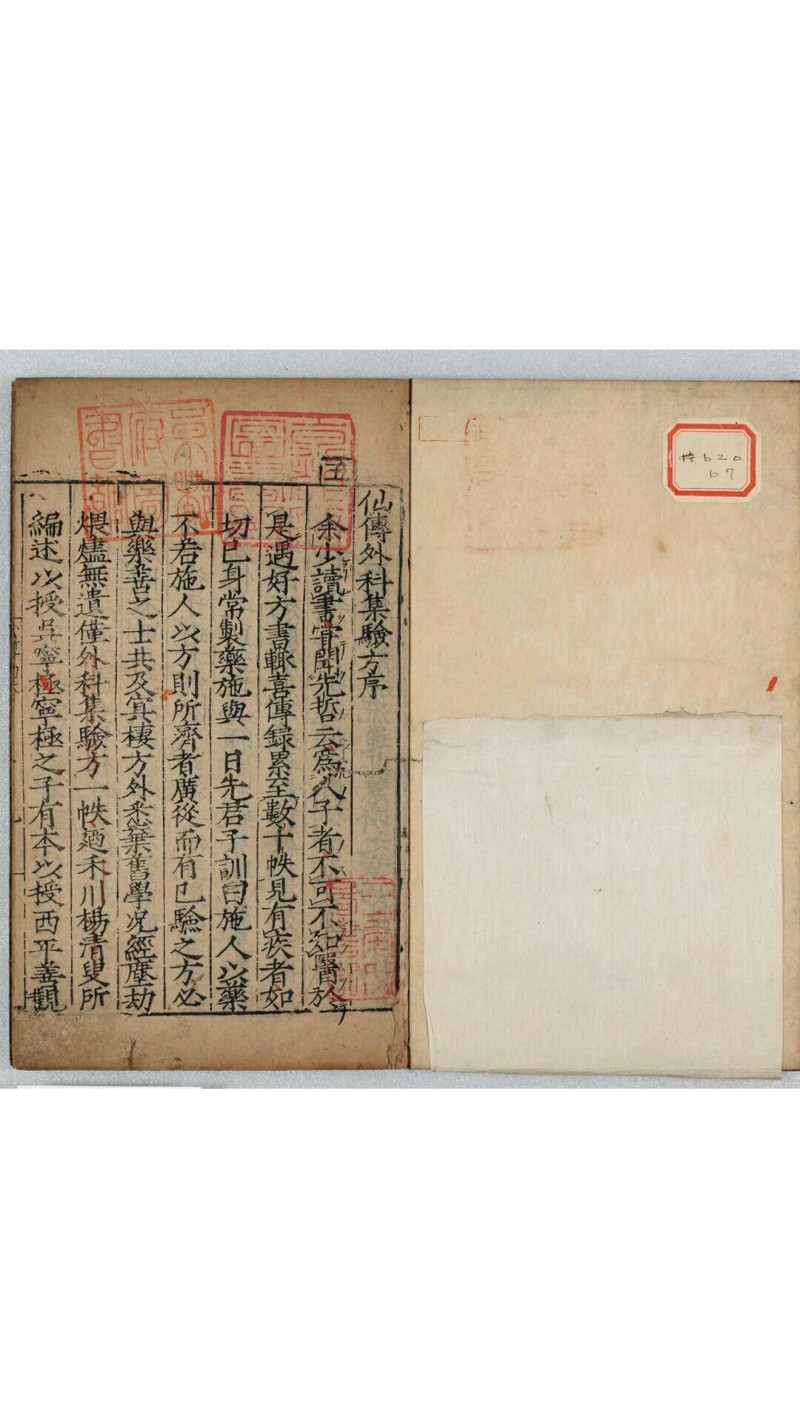 仙傳外科集驗方序
余少讀書甞聞先哲云為人子者不可不知醫於
是遇好方書輙喜傳錄累至數十帙見有疾者如
切己身常製藥施與一日先君子訓曰施人以藥
不若施人以方則所濟者廣從而有已驗之方必
與藥善之士共及寘棲方外悉棄舊學况經塵劫
煨燼無遺僅外科集驗方一帙廼禾川楊清叟所
編述以授吳寧極寧極之子有本以授西平善觀
特620
67